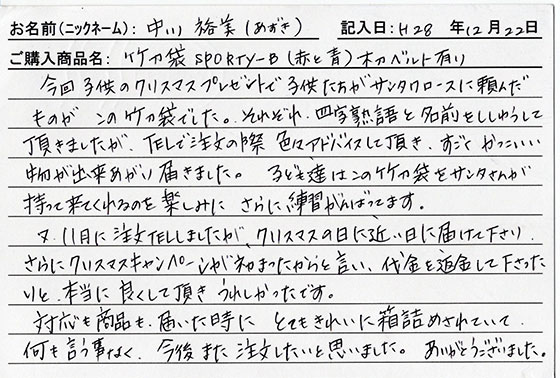 お名前(ニックネーム): 中川 裕美(あずき) 記入日: H28 年12月22日
ご購入商品名: 竹刀袋 SPORTY-B (赤と青) 木刀ベルト有り
今回 子供のクリスマスプレゼントで 子供たちがサンタクロースに頼んだ
ものが この竹刀袋でした。それぞれ、四字熟語と名前をししゅうして
頂きましたが、TELで注文の際 色々アドバイスして頂き、すごく かっこいい
物が出来あがり届きました。 子ども達はこの竹刀袋をサンタさんが
持って来てくれるのを 楽しみに さらに練習がんばってます。
又、11月に注文TELしましたが、クリスマスの日に近い日に届けて下さり、
さらにクリスマスキャンペーンが初まったからと言い、代金を返金して下さった
りと、本当に 良くして頂き うれしかったです。
対応も商品も、届いた時に とてもきれいに箱詰めされていて、
何も言う事なく、今後また注文したいと思いました。 ありがとうございました。